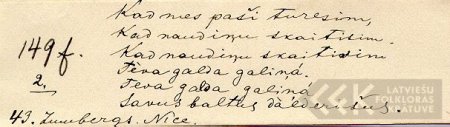 Kad mes paši turēsim,
Kad naudiņu skaitīsim.
149f. Kad naudiņu skaitīsim
Tēva galda galiņā.
2. Teva galda galiņā
Savus baltus dālderīšus.
43. Zumbergs. Nīcē.
LATVIEŠU
FOLKLORAS
KRĀTUVE